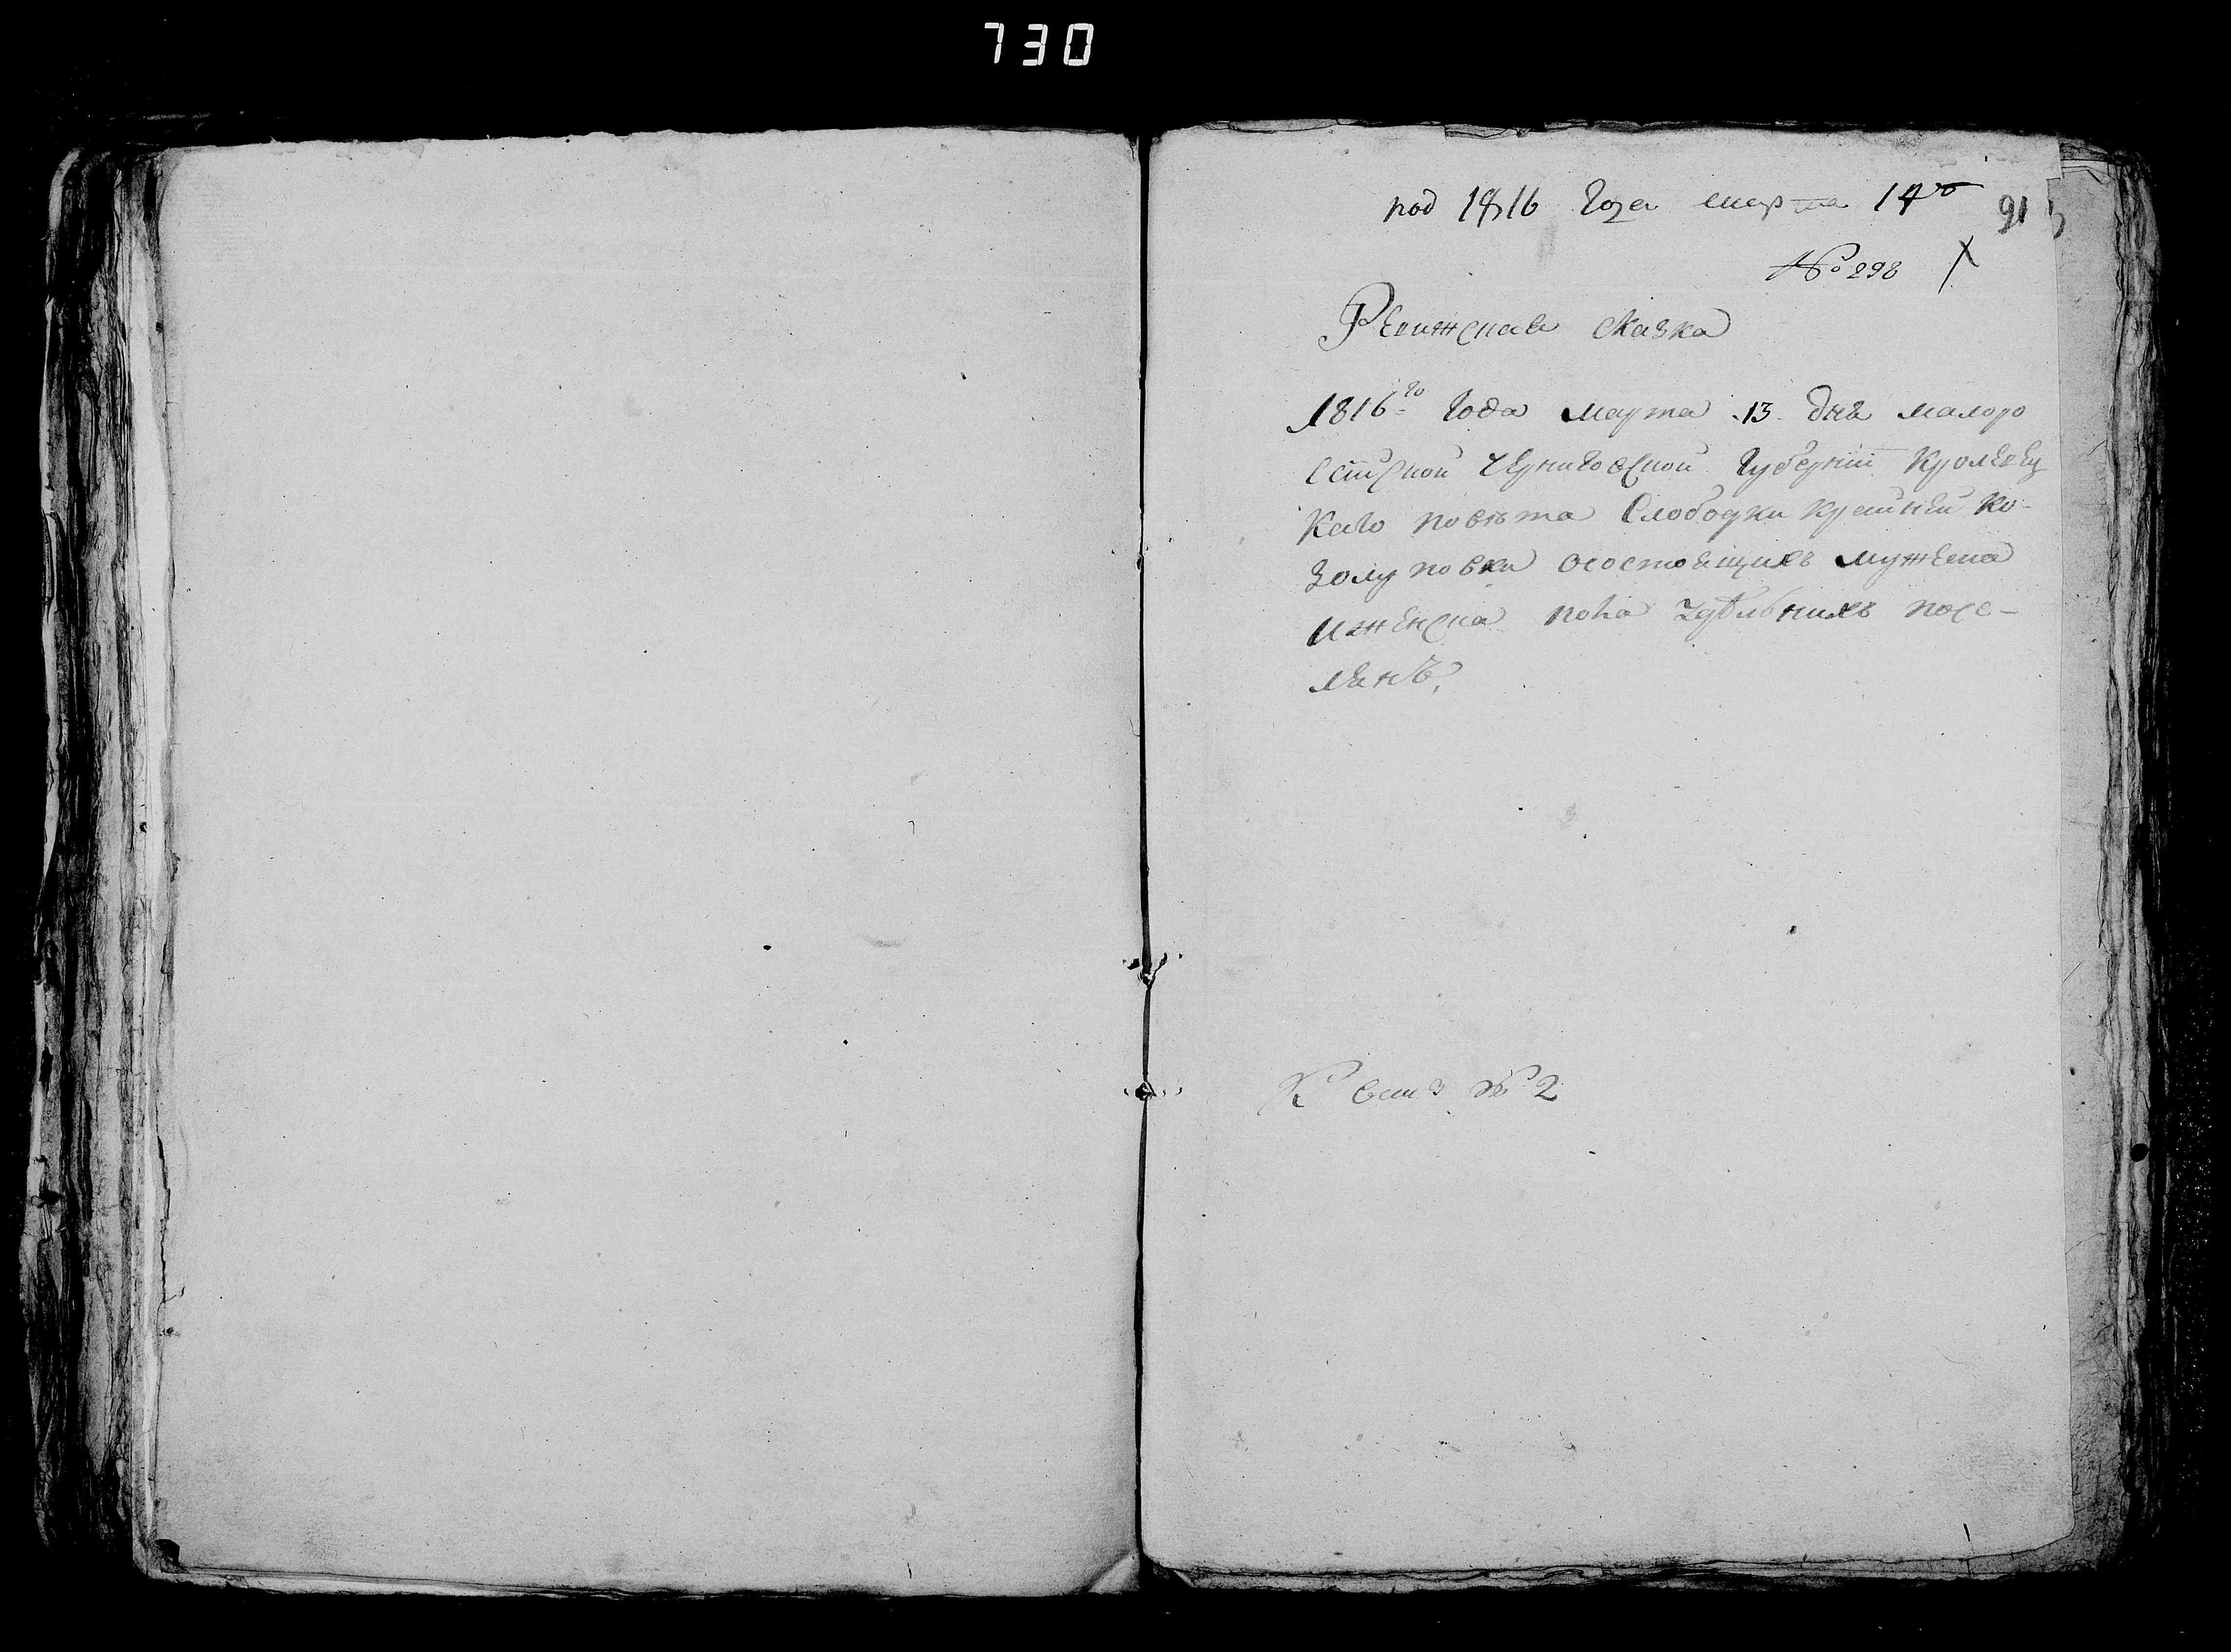 730
под 1816 года марта 14го
91
№ 298
Ревижская сказка
1816го года марта 13 дня малоро
ссийской Черниговской Губернии Кролевец
каго повѣта Слободки Крайней Ко-
золуповки осостоящихъ мужеска
иженска пола удѣльнихъ посе-
лянъ,
К № 2